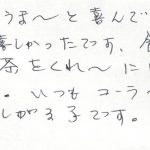 うま〜と喜んで
嬉しかったです、
茶をくれ〜に
。いつもコーラ
しが子です。